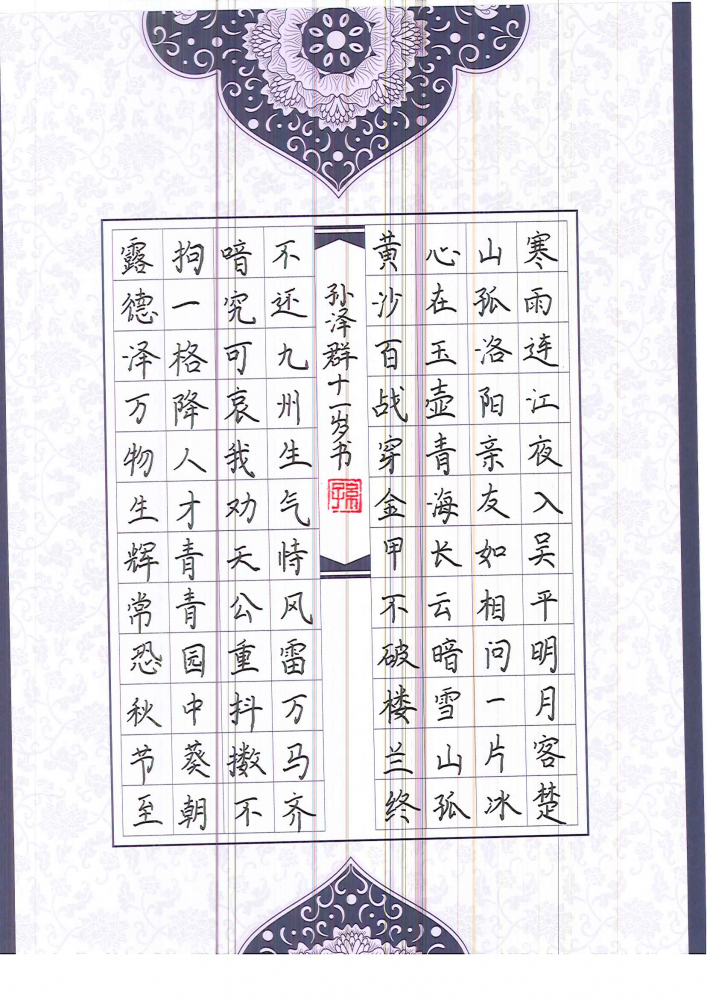 寒雨连江夜入吴平明月客楚
山孤洛阳亲友如相问一片冰
心在玉壶青海长云暗雪山孤
黄沙百战穿金甲不破楼兰终
孙泽群十一岁书
孫
不还九州生气恃风雷万马齐
喑究可哀我劝天公重抖擞不
拘一格降人才青青园中葵朝
露德泽万物生辉常恐秋节至